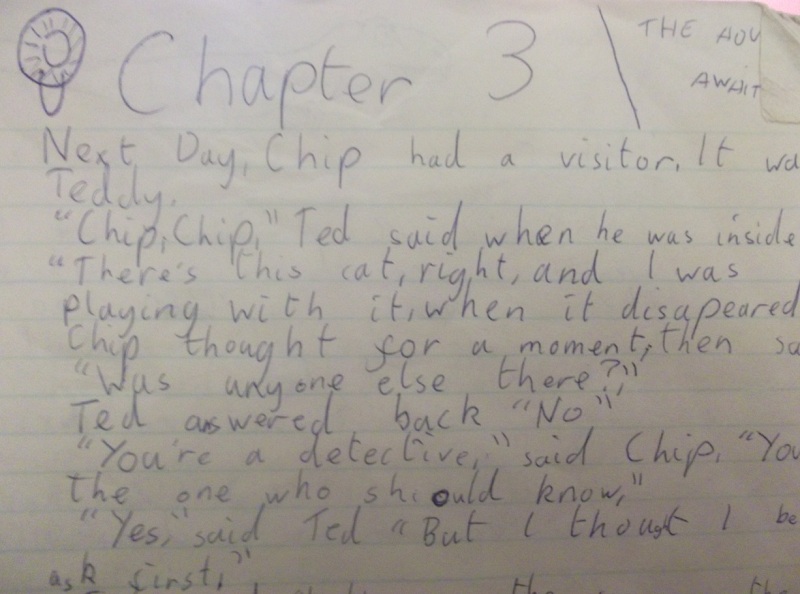 Chapter 3
THE ADV
AWAIT
Next Day, Chip had a visitor. It wa
Teddy.
"Chip, Chip," Ted said when he was inside
"There's this cat, right, and I was
playing with it, when it disapeared
Chip thought for a moment, then sa
"Was anyone else there?,"
Ted answered back "No"
"You're a detective," said Chip. "You
the one who should know,"
"Yes," said Ted "But I thought I be
ask first,"